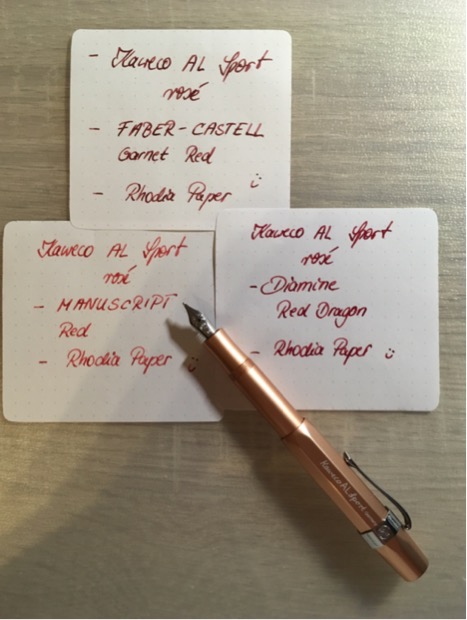 - Kaweco AL Sport
rosé
- FABER-CASTELL
Garnet Red
- Rhodia Paper :)
Kaweco AL Sport
rosé
- MANUSCRIPT
Red
- Rhodia Paper :)
Kaweco AL Sport
rosé
- Diamine
Red Dragon
- Rhodia Paper :)
Kaweco AL Sport